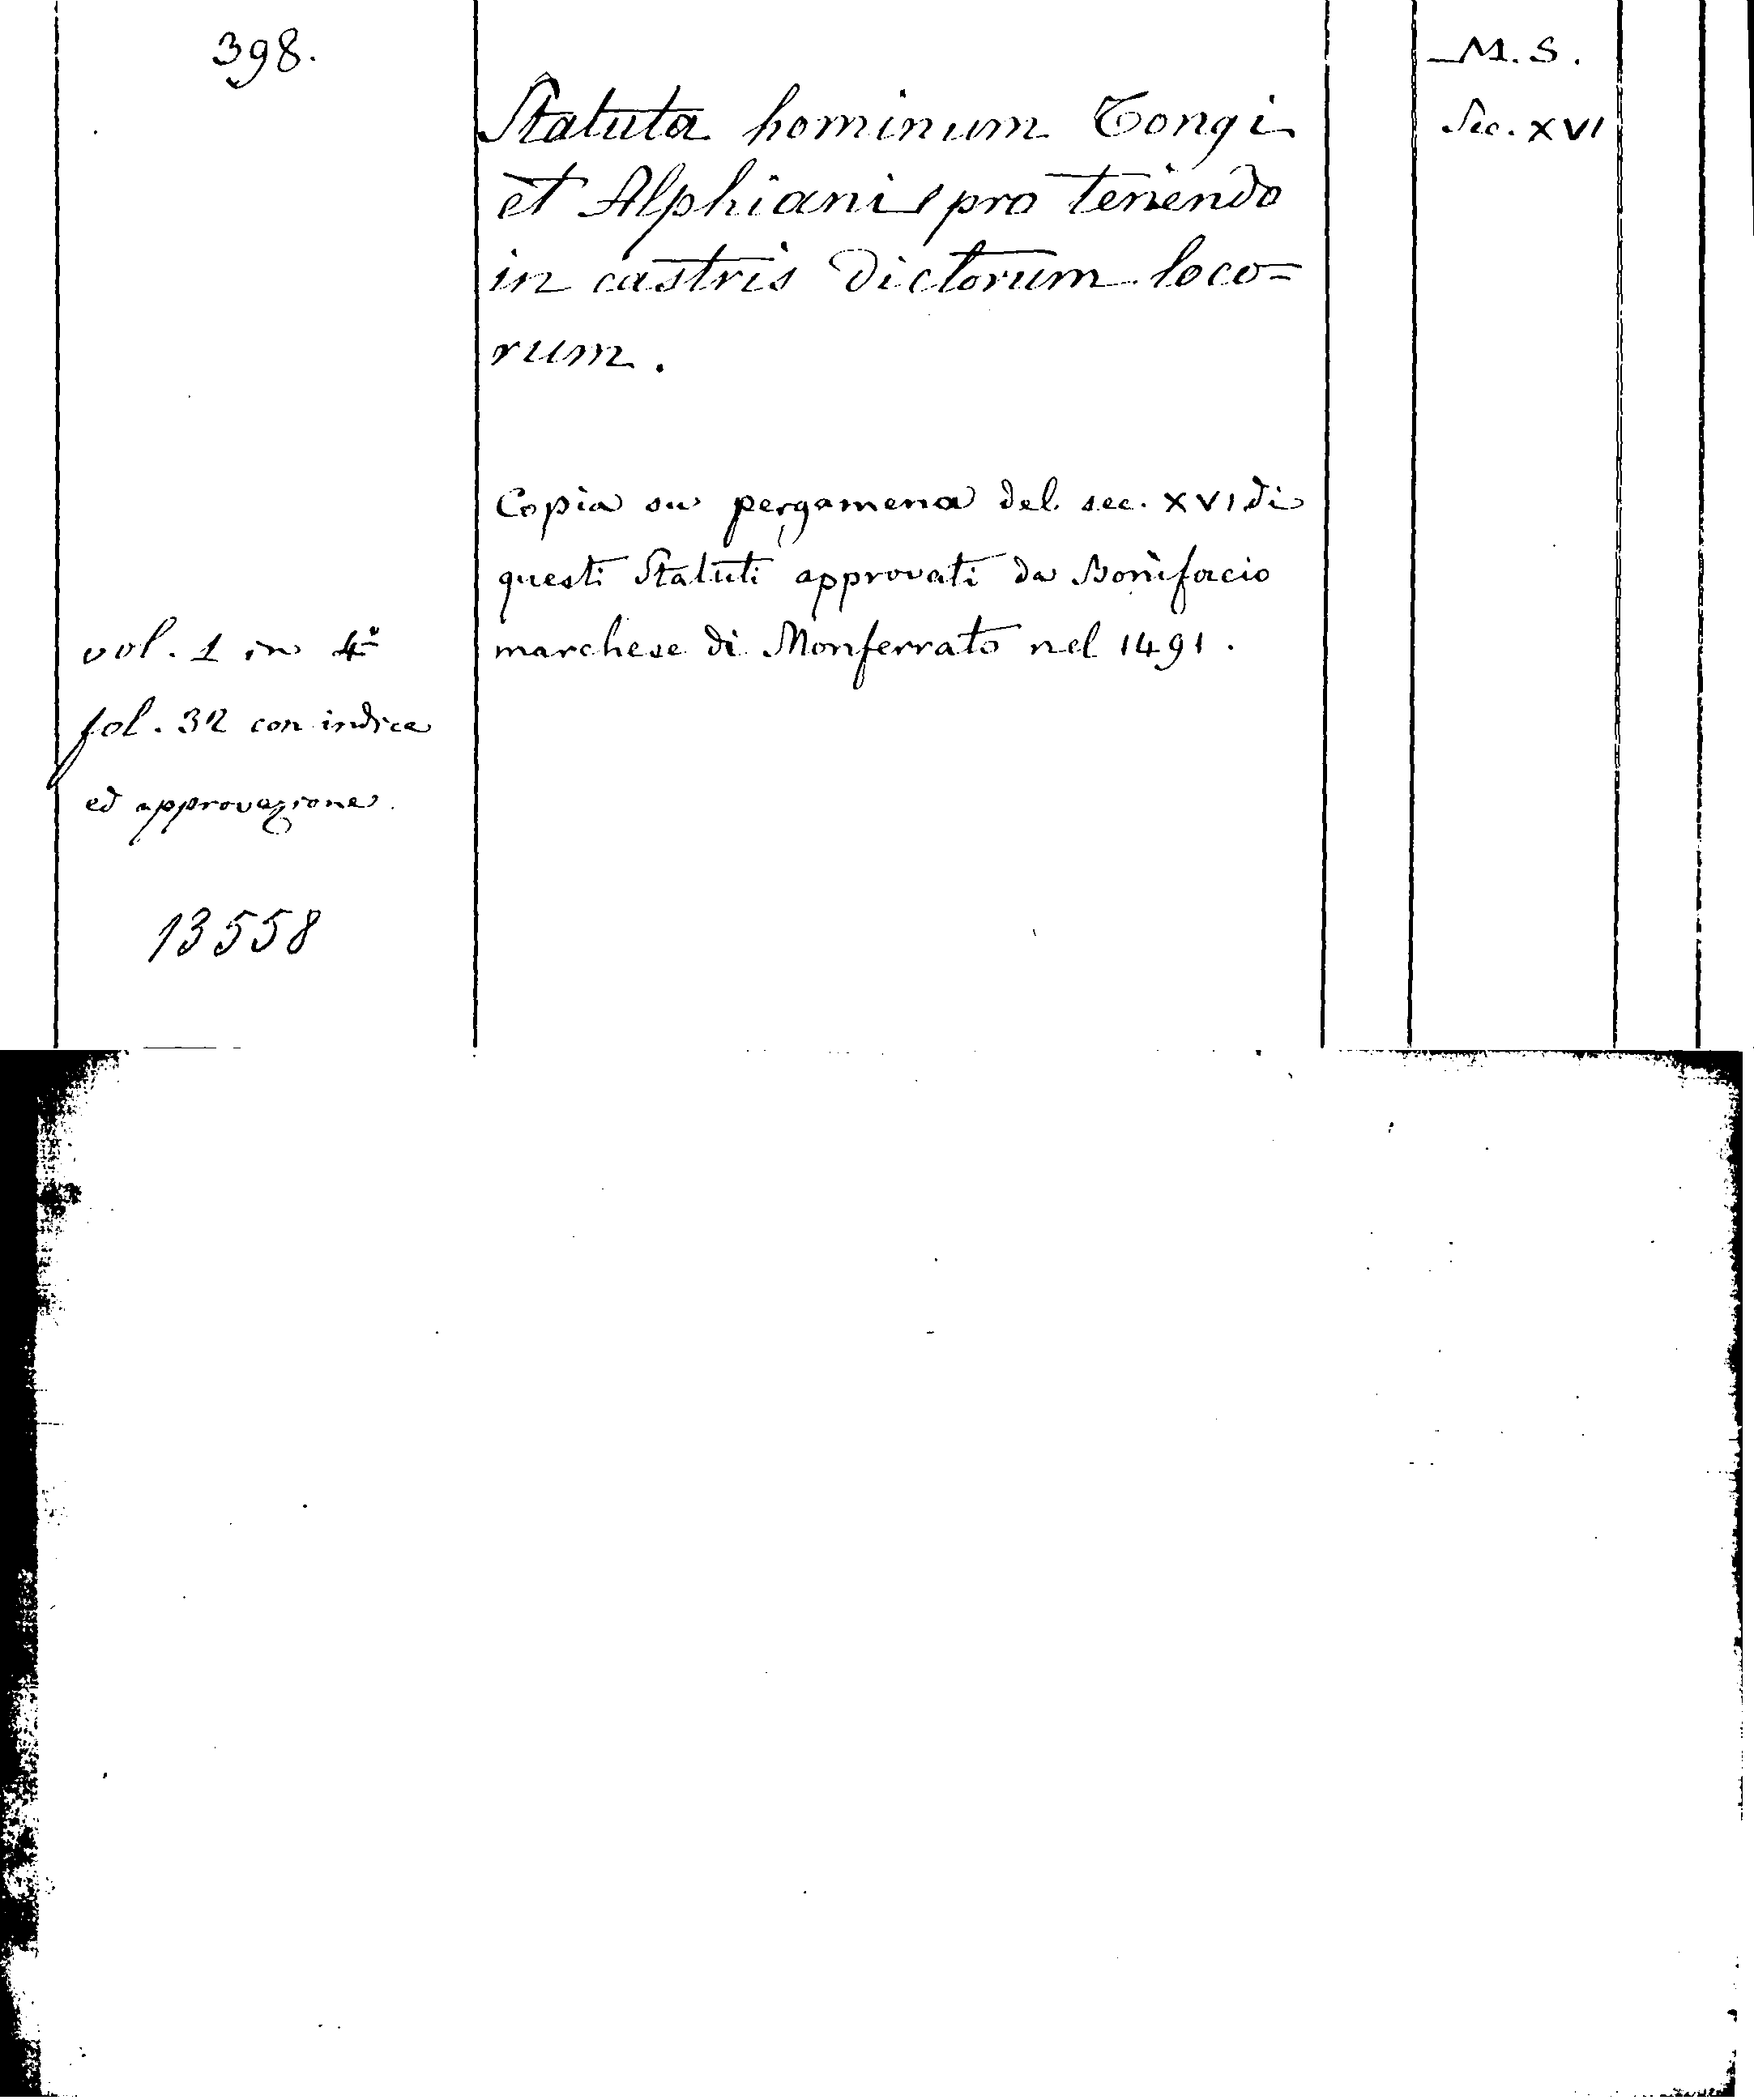 398.
Statuta hominum Tongi
et Alphiani pro tenendo
in castris dictorum loco=
rum.
M.S.
Sec. XVI
Copia su pergamena del sec. XVI di
questi Statuti approvati da Bonifacio
marchese di Monferrato nel 1491.
vol. 1 in 4º
fol. 32 con indice
ed approvazione.
13558